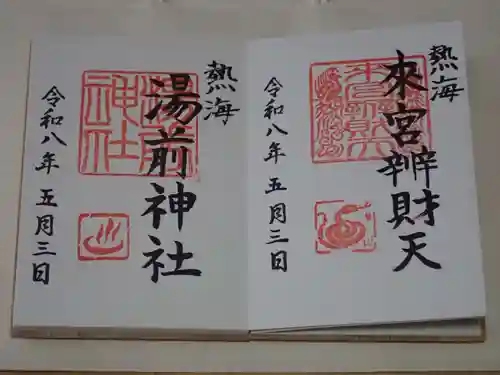 熱海
來宮辨財天
令和八年五月三日
熱海
湯前神社
湯前神社
令和八年五月三日